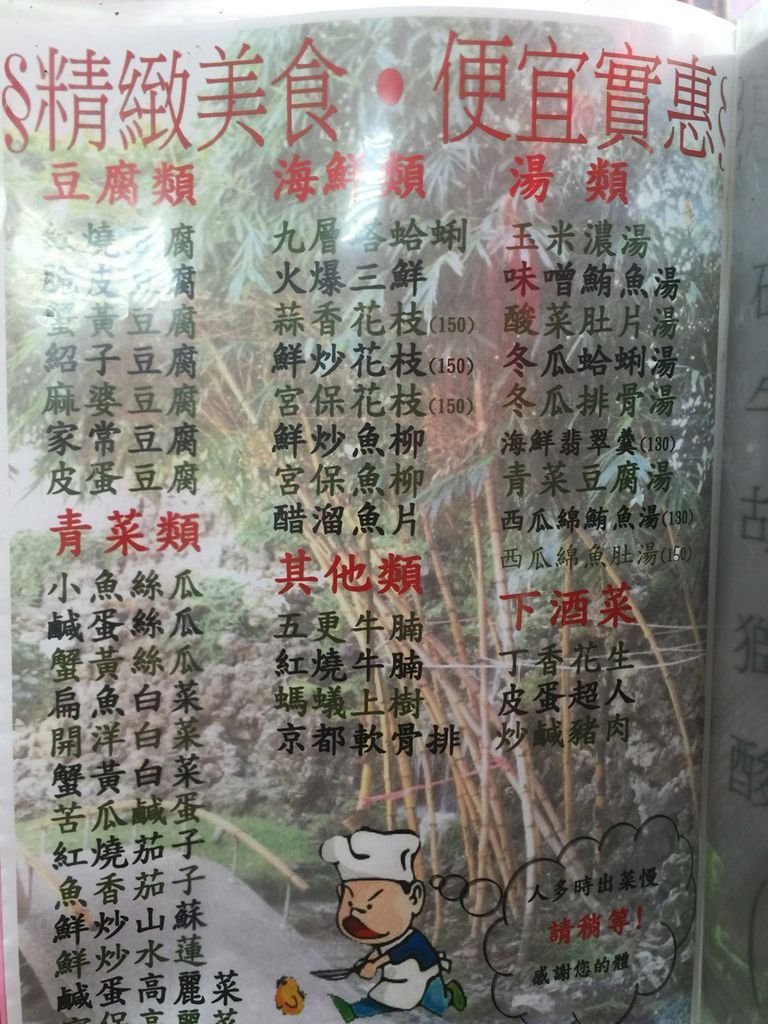 §精緻美食•便宜實惠§
豆腐類
紅燒豆腐
脆皮豆腐
蟹黃豆腐
紹子豆腐
麻婆豆腐
家常豆腐
皮蛋豆腐
青菜類
小魚絲瓜
鹹蛋絲瓜
蟹黃絲瓜
扁魚白菜
開洋白菜
蟹黃白菜
苦瓜鹹蛋
紅燒茄子
魚香茄子
鮮炒山蘇
鮮炒水蓮
鹹蛋高麗菜
海鮮類
九層塔蛤蜊
火爆三鮮
蒜香花枝(150)
鮮炒花枝(150)
宮保花枝(150)
鮮炒魚柳
宮保魚柳
醋溜魚片
其他類
五更牛腩
紅燒牛腩
螞蟻上樹
京都軟骨排
湯類
玉米濃湯
味噌鮪魚湯
酸菜肚片湯
冬瓜蛤蜊湯
冬瓜排骨湯
海鮮翡翠羹(130)
青菜豆腐湯
西瓜綿鮪魚湯(130)
西瓜綿魚肚湯(150)
下酒菜
丁香花生
皮蛋超人
炒鹹豬肉
人多時出菜慢
請稍等!
感謝您的體